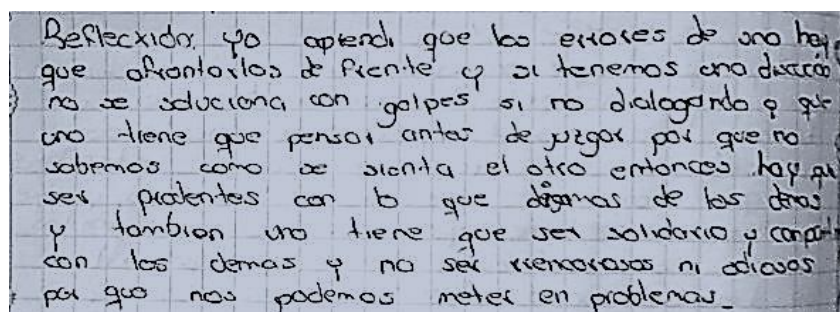 Reflecxión: yo aprendi que los errores de uno hay
que afrontarlos de frente y si tenemos una
no se soluciona con golpes si no dialogando y que
uno tiene que pensar antes de juzgar por que no
sabemos como se sienta el otro entonces hay que
ser prudentes con lo que digamos de los demas
y tambien uno tiene que ser solidario y
con los demas y no ser rrencorosos ni odiosos
por que nos podemos meter en problemas_